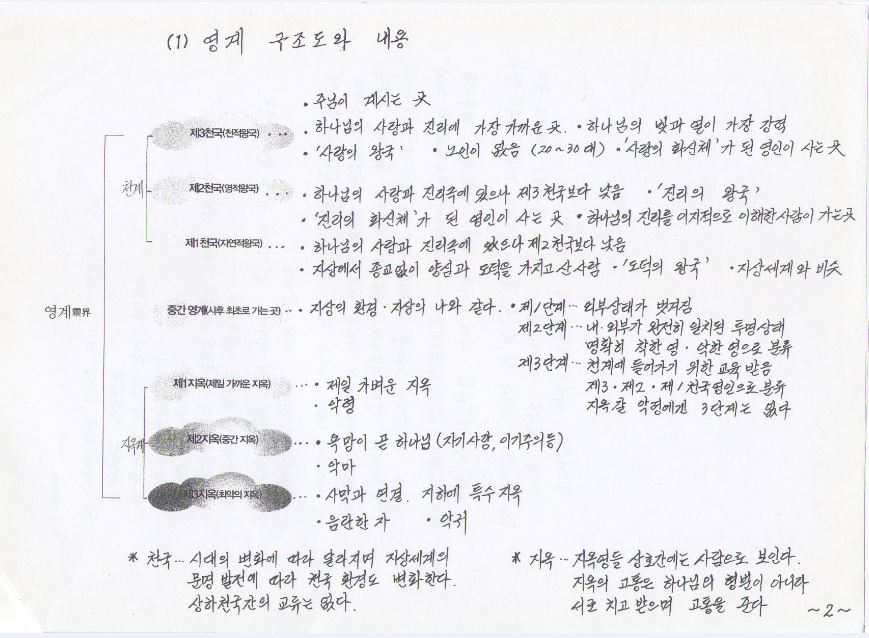 (1) 영계 구조도와 내용
• 주님이 계시는 곳
제3천국(천적왕국) ... • 하나님의 사랑과 진리에 가장 가까운 곳. • 하나님의 빛과 열이 가장 강력
• '사랑의 왕국' • 노인이 없음 (20~30대) • '사랑의 화신체'가 된 영인이 사는 곳
천계
제2천국(영적왕국) ... • 하나님의 사랑과 진리속에 있으나 제3천국보다 낮음 • '진리의 왕국'
• '진리의 화신체'가 된 영인이 사는 곳 • 하나님의 진리를 이지적으로 이해한사람이 가는곳
제1천국(자연적왕국) ... • 하나님의 사람과 진리속에 있으나 제2천국보다 낮음
• 지상에서 종교없이 양심과 도덕을 가지고 산 사람 • '도덕의 왕국' • 지상세계와 비슷
영계靈界
중간 영계(사후 최초로 가는 곳) ... • 지상의 환경·지상의 나와 같다. • 제1단계... 외부상태가 벗겨짐
제2단계... 내·외부가 완전히 일치된 투명상태
명확히 착한 영·악한 영으로 분류
제3단계... 천계에 들어가기 위한 교육 받음
제3·제2·제1천국영인으로 분류
지옥갈 악령에겐 3단계는 없다
제1지옥(제일 가까운 지옥) ... • 제일 가벼운 지옥
• 악령
지옥계
제2지옥(중간 지옥) ... • 욕망이 곧 하나님 (자기사랑, 이기주의등)
• 악마
제3지옥(최악의 지옥) ... • 사막과 연결. 지하에 특수 지옥
• 음란한 자 • 악귀
* 천국... 시대의 변화에 따라 달라지며 지상세계의
문명 발전에 따라 천국 환경도 변화한다.
상하천국간의 교류는 없다.
* 지옥... 지옥영들 상호간에는 사람으로 보인다.
지옥의 고통은 하나님의 형벌이 아니라
서로 치고 받으며 고통을 준다
~2~